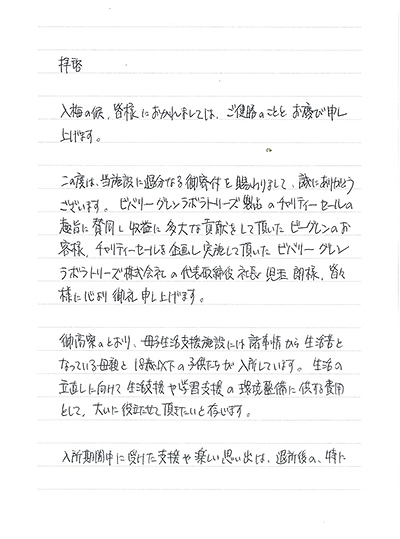 拝啓
入梅の候、皆様におかれましては、ご健勝のこととお慶び申し
上げます。
この度は、当施設に過分なる御寄付を賜わりまして、誠にありがとう
ございます。ビバリーグレンラボラトリーズ製品のチャリティーセールの
趣旨に賛同し収益に多大な貢献をして頂いたビーグレンのお
客様、チャリティーセールを企画し実施して頂いたビバリーグレン
ラボラトリーズ株式会社の代表取締役社長 児玉 朗様、皆々
様に心より御礼申し上げます。
御高察のとおり、母子生活支援施設には諸事情から生活苦と
なっている母親と18歳以下の子供たちが入所しています。生活の
立直しに向けて生活支援や学習支援の環境整備に供する費用
として、大いに役立たせて頂きたいと存じます。
入所期間中に受けた支援や楽しい思い出は、退所後の、特に